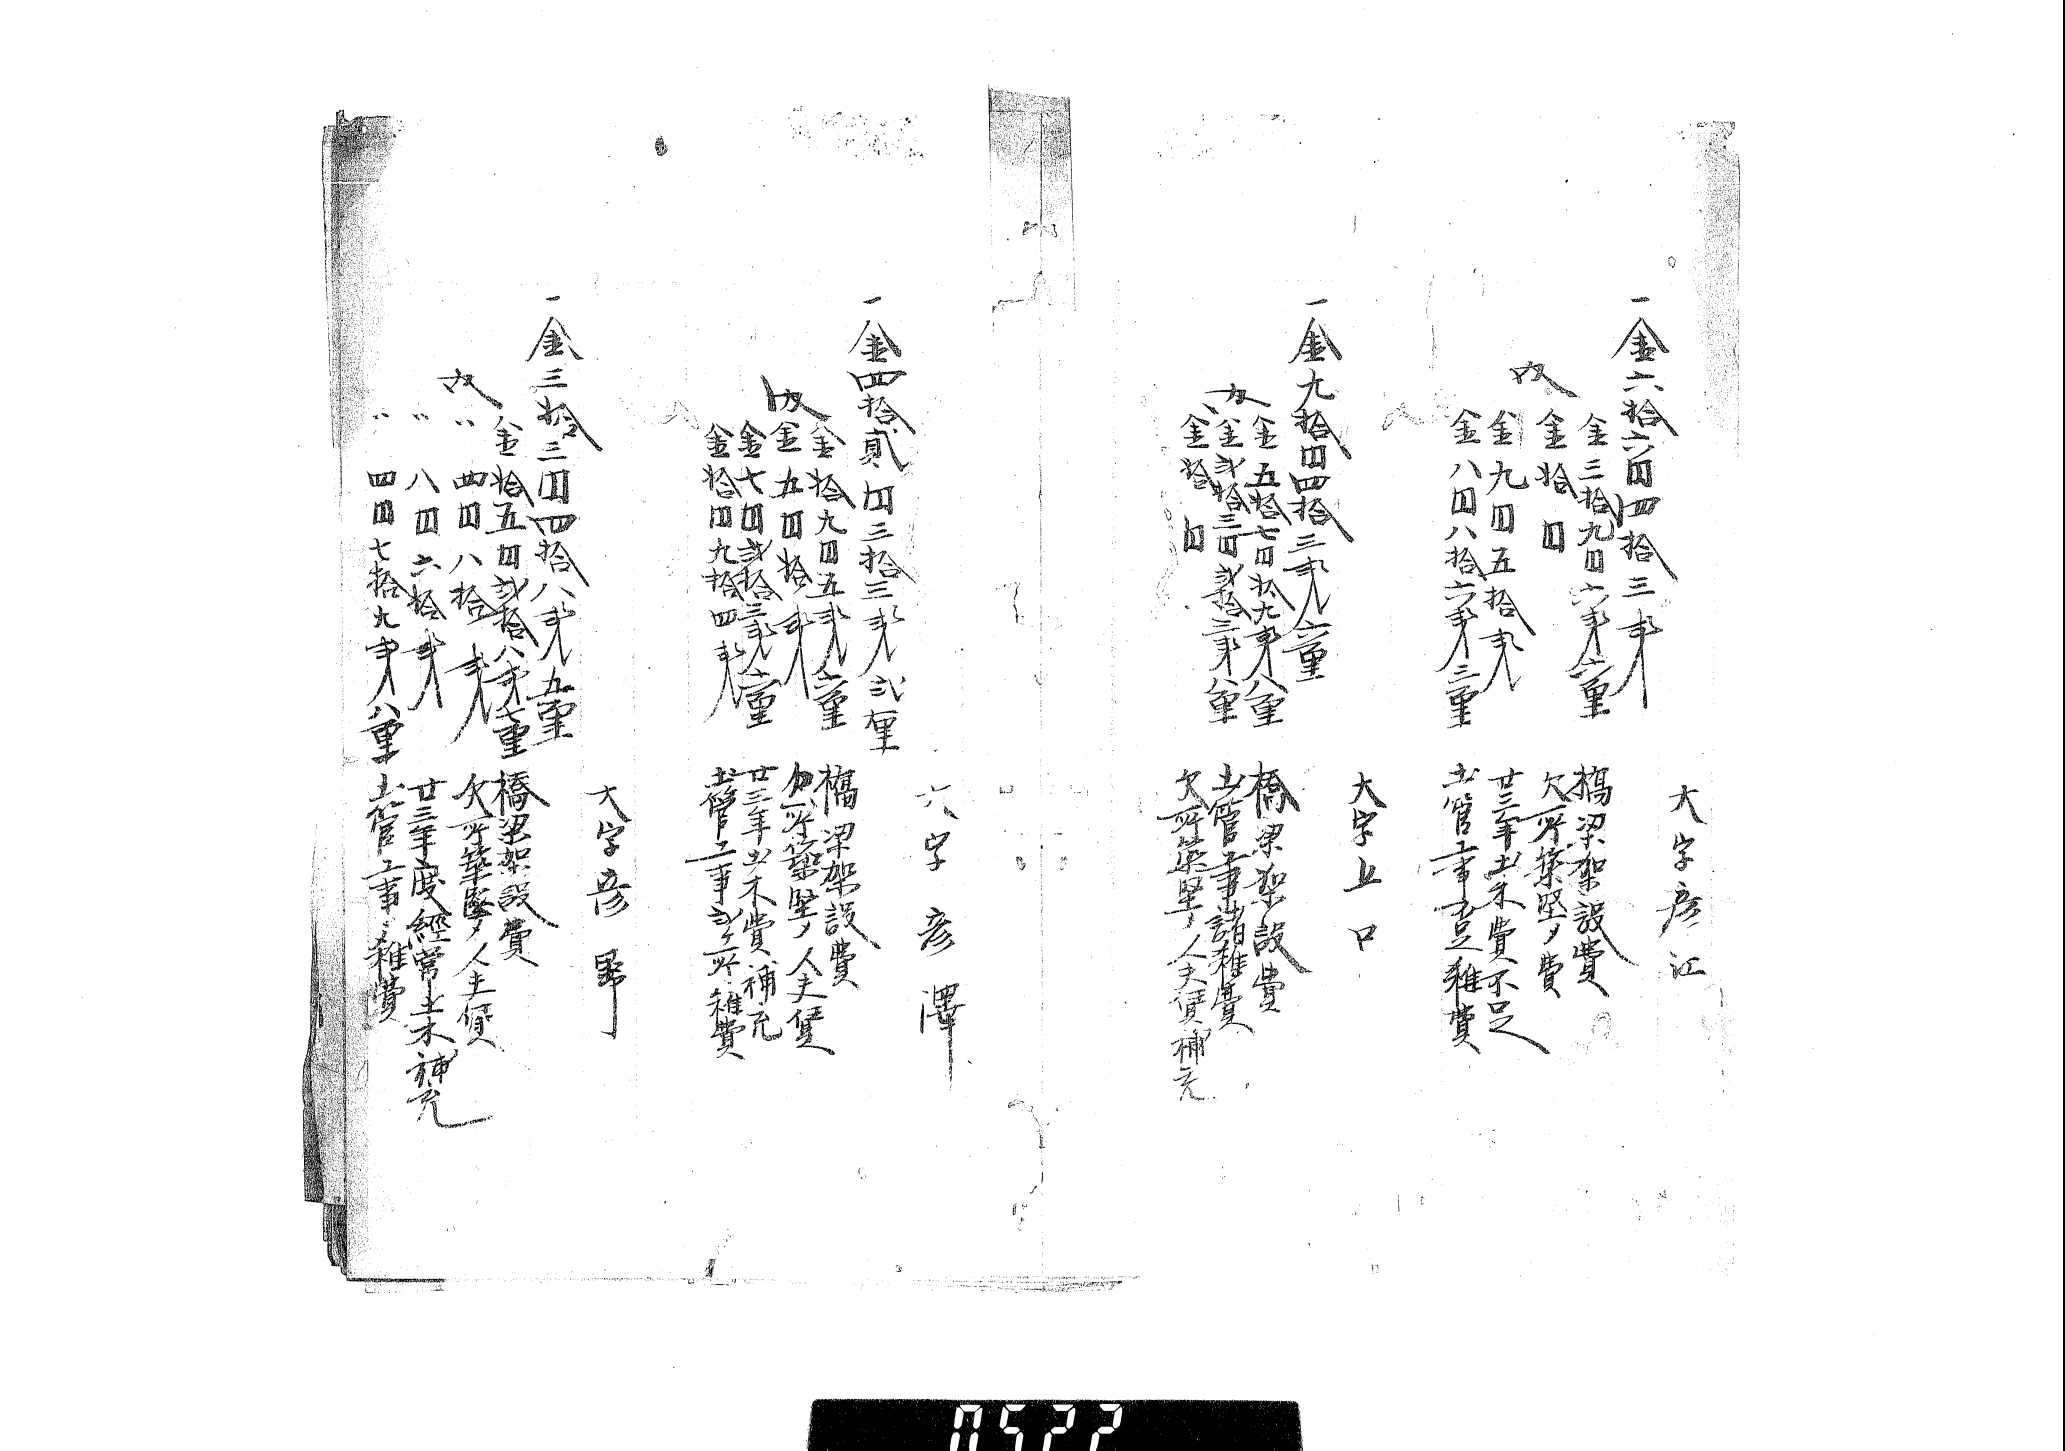 大字彦江
一金六拾六円四拾三銭
内
金三拾九円六銭六厘 橋梁架設費
金拾円 欠所築堅ノ費
金九円五拾銭 廿三年土木費不足
金八円八拾六銭三厘 土管工事 雑費
大字上口
一金九拾四円四拾三銭六厘
内
金五拾七円拾九銭八厘 橋梁架設費
金弐拾三円弐拾三銭八厘 土管工事諸雑費
金拾円 欠所築堅ノ人夫賃補充
大字彦澤
一金四拾貳円三拾三銭弐厘
内
金拾九円五銭六厘 橋梁架設費
金五円拾銭 欠所築堅ノ人夫賃
金七円弐拾三銭六厘 廿三年土木費補充
金拾円九拾四銭 土管工事弐ヶ所雑費
大字彦野
一金三拾三円四拾八銭五厘
内
金拾五円弐拾八銭七厘 橋梁架設費
〃 四円八拾銭 欠所築堅ノ人夫賃
〃 八円六拾銭 廿三年度経常土木補充
〃 四円七拾九銭八厘 土管工事雑費
0522